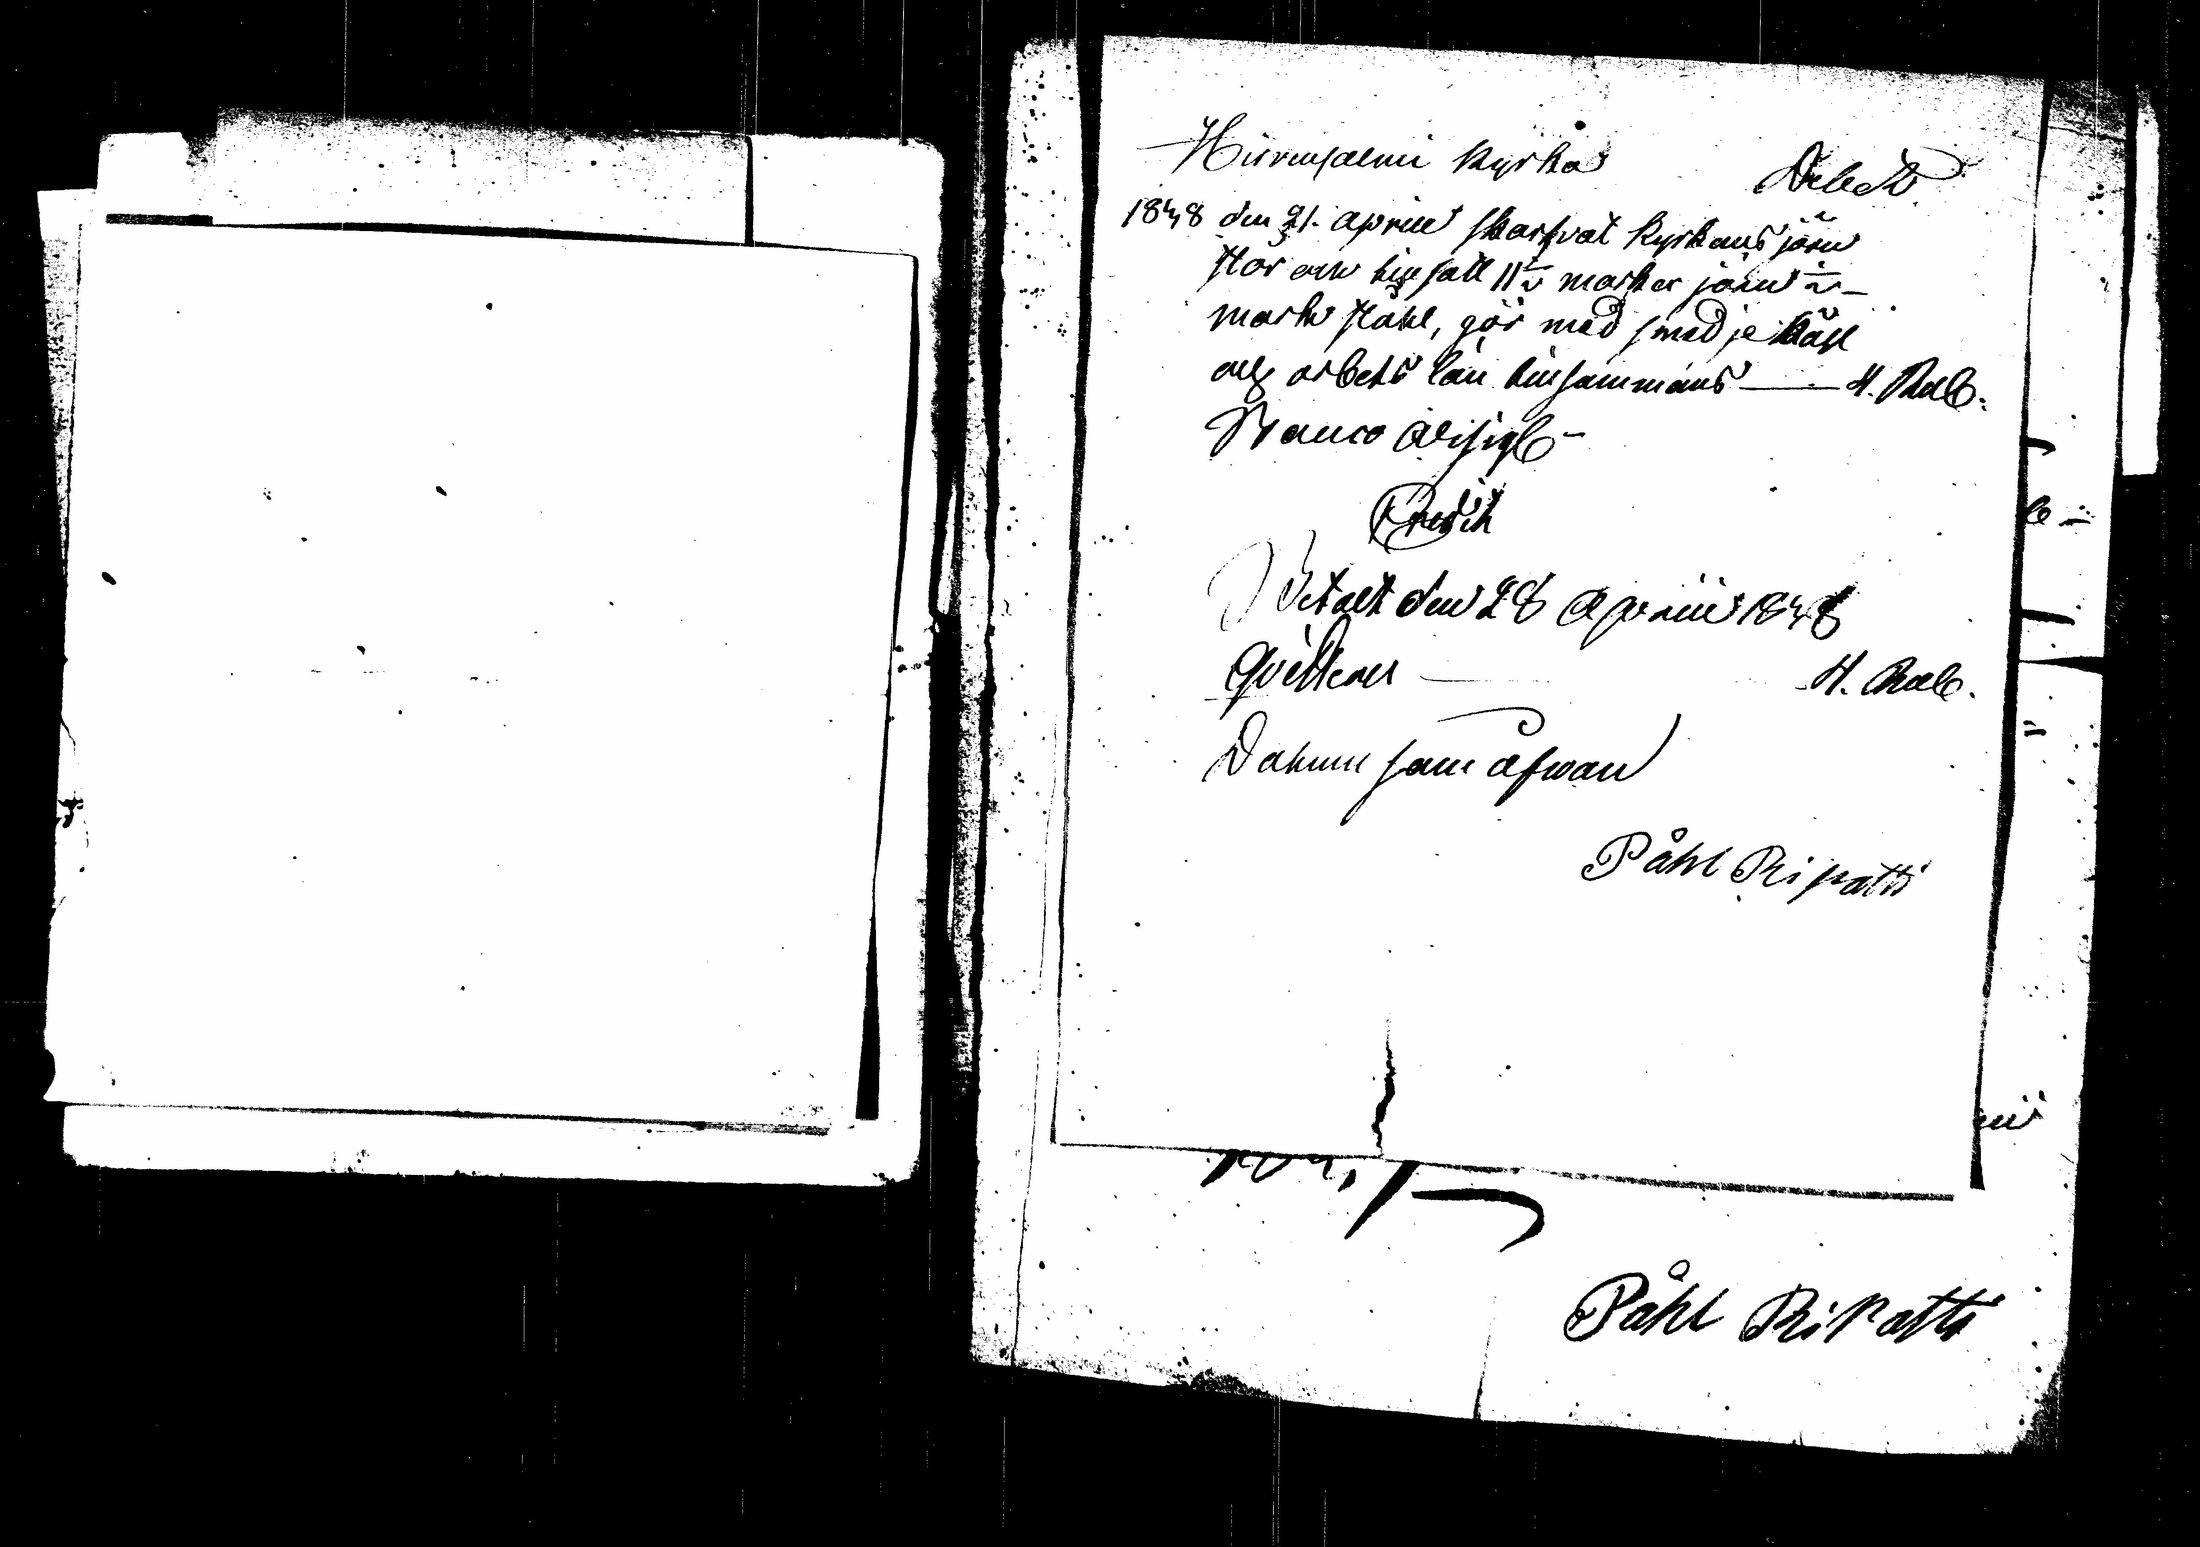 Hirvensalmi Kyrka Debet
1848 den 21. april skarfvat Kyrkans järn
stör och tilsatt 11 1/2 marker järn 1/2
mark stål, gör med smedje kåhl
och arbets lön tilsammans — 4. Rub.
Banco Assigb –
Kredit
Betalt den 28 April 1848
Qvitteras — 4. Rub.
Datum som åfvan
Påhl Ripatti
Påhl Ripatti